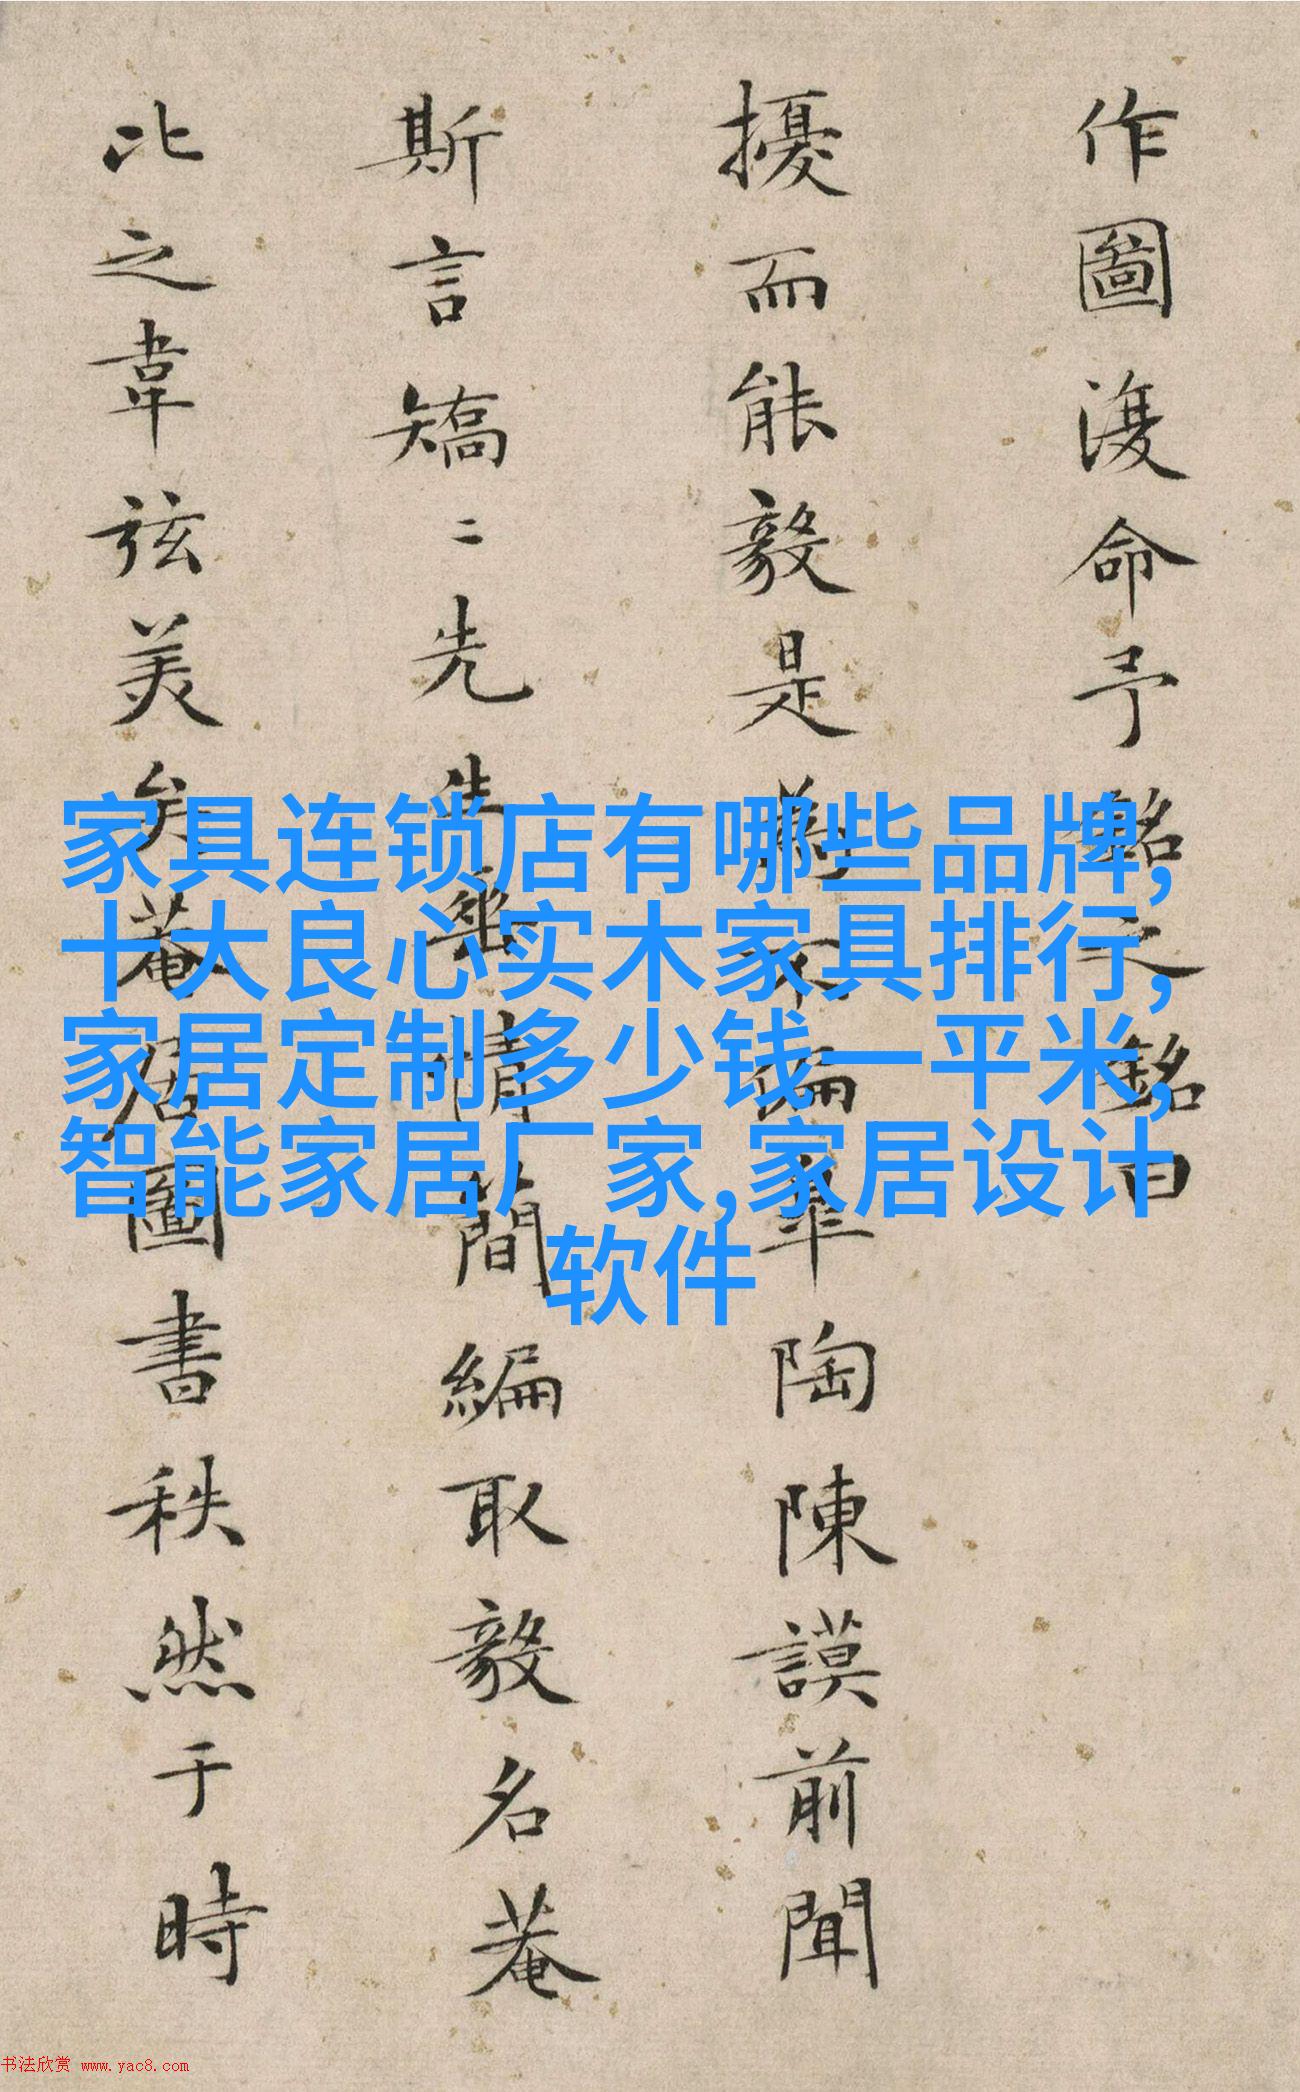 作圖復命予銘之銘曰
擾而能毅是為不偏皐陶陳謨前聞
斯言矯二先生密情簡編取毅名菴
比之韋弦美矣菴居圖書秩然于時
家具连锁店有哪些品牌,
十大良心实木家具排行,
家居定制多少钱一平米,
智能家居厂家,家居设计
软件
书法欣赏 www.yac8.com